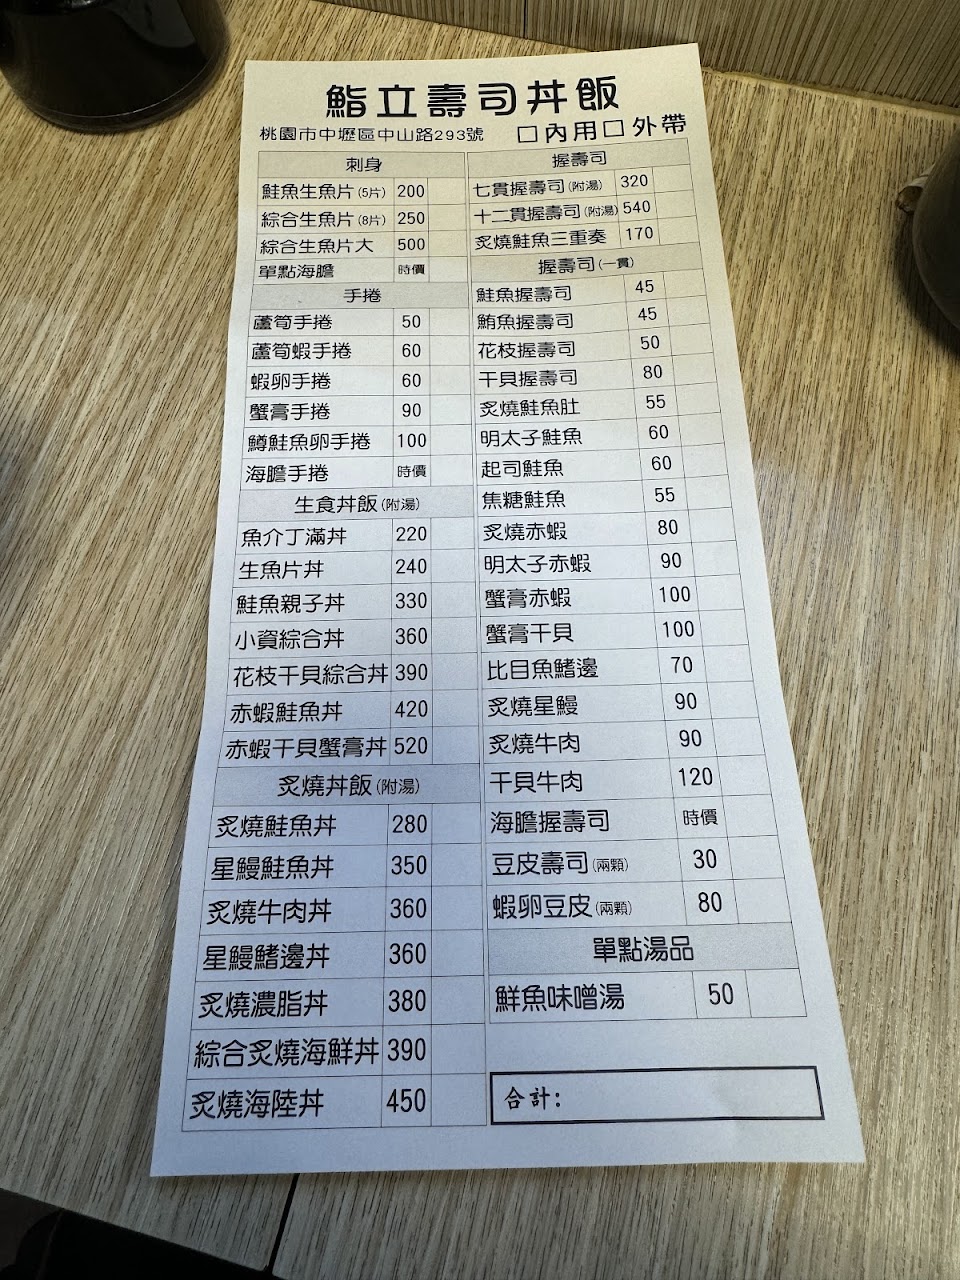 鮨立壽司丼飯
桃園市中壢區中山路293號 □內用□外帶
刺身
鮭魚生魚片(5片) 200
綜合生魚片(8片) 250
綜合生魚片大 500
單點海膽 時價
手捲
蘆筍手捲 50
蘆筍蝦手捲 60
蝦卵手捲 60
蟹膏手捲 90
鱒鮭魚卵手捲 100
海膽手捲 時價
生食丼飯(附湯)
魚介丁滿丼 220
生魚片丼 240
鮭魚親子丼 330
小資綜合丼 360
花枝干貝綜合丼 390
赤蝦鮭魚丼 420
赤蝦干貝蟹膏丼 520
炙燒丼飯(附湯)
炙燒鮭魚丼 280
星鰻鮭魚丼 350
炙燒牛肉丼 360
星鰻鰭邊丼 360
炙燒濃脂丼 380
綜合炙燒海鮮丼 390
炙燒海陸丼 450
握壽司
七貫握壽司(附湯) 320
十二貫握壽司(附湯) 540
炙燒鮭魚三重奏 170
握壽司(一貫)
鮭魚握壽司 45
鮪魚握壽司 45
花枝握壽司 50
干貝握壽司 80
炙燒鮭魚肚 55
明太子鮭魚 60
起司鮭魚 60
焦糖鮭魚 55
炙燒赤蝦 80
明太子赤蝦 90
蟹膏赤蝦 100
蟹膏干貝 100
比目魚鰭邊 70
炙燒星鰻 90
炙燒牛肉 90
干貝牛肉 120
海膽握壽司 時價
豆皮壽司(兩顆) 30
蝦卵豆皮(兩顆) 80
單點湯品
鮮魚味噌湯 50
合計: